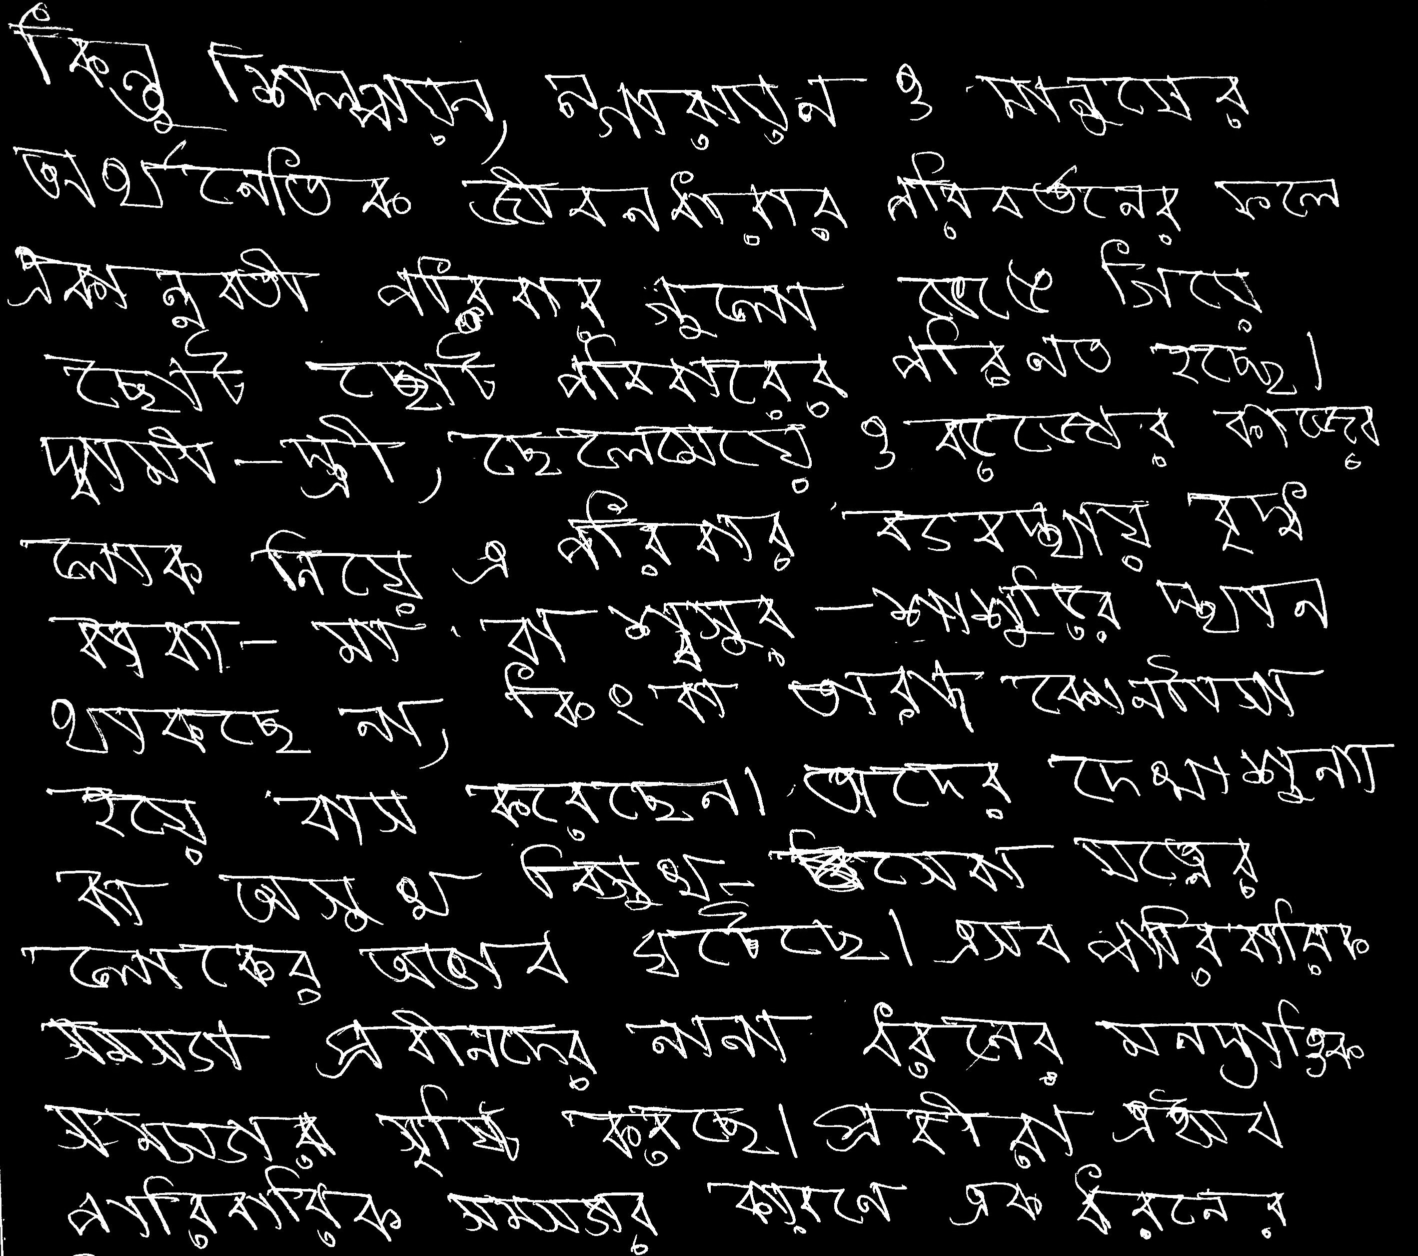 কিন্তু শিল্পায়ন, নগরায়ন ও মানুষের
অর্থনৈতিক জীবনধারার পরিবর্তনের ফলে
একান্নবর্তী পরিবার গুলো ভেঙে গিয়ে
ছোট ছোট পরিবারের পরিনত হচ্ছে।
স্বামী - স্ত্রী, ছেলেমেয়ে ও বড়জোর কাজের
লোক নিয়ে এ পরিবার ব্যবস্থায় বৃদ্ধ
বাবা - মা বা শ্বশুর - শাশুড়ির স্থান
থাকছে না, কিংবা তারা কোনঠাসা
হয়ে বাস করেছেন। তাদের দেখাশুনা
বা অসুখ বিসুখ - সেবা যত্নের
লোকের অভাব ঘটেছে। এসব পারিবারিক
সমস্যা প্রবীনদের নানা ধরনের মনস্তাত্ত্বিক
সমস্যার সৃষ্টি করছে। প্রবীনরা এইসব
পারিবারিক সমস্যার কারনে এক ধরনের